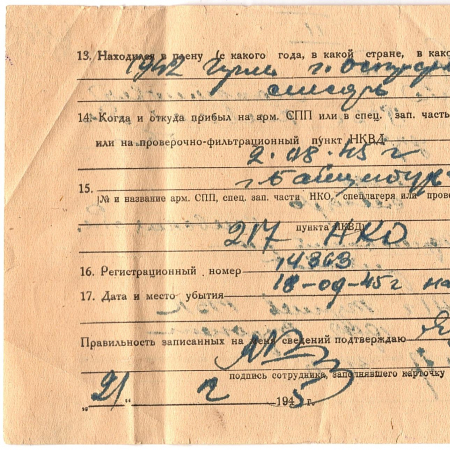 13. Находился в плену (с какого года, в какой стране, в како
1942
слесарь
14. Когда и откуда прибыл на арм. СПП или в спец. зап. часть
или на проверочно-фильтрационный пункт НКВД
2.08.45 г
15.
(№ и название арм. СПП, спец. зап. части НКО, спецлагеря или прове
пункта НКВД)
217 НКО
16. Регистрационный номер 14363
17. Дата и место убытия 18-09-45 г на
Правильность записанных на меня сведений подтверждаю
подпись сотрудника, заполнявшего карточку
„21“ 1945 г.